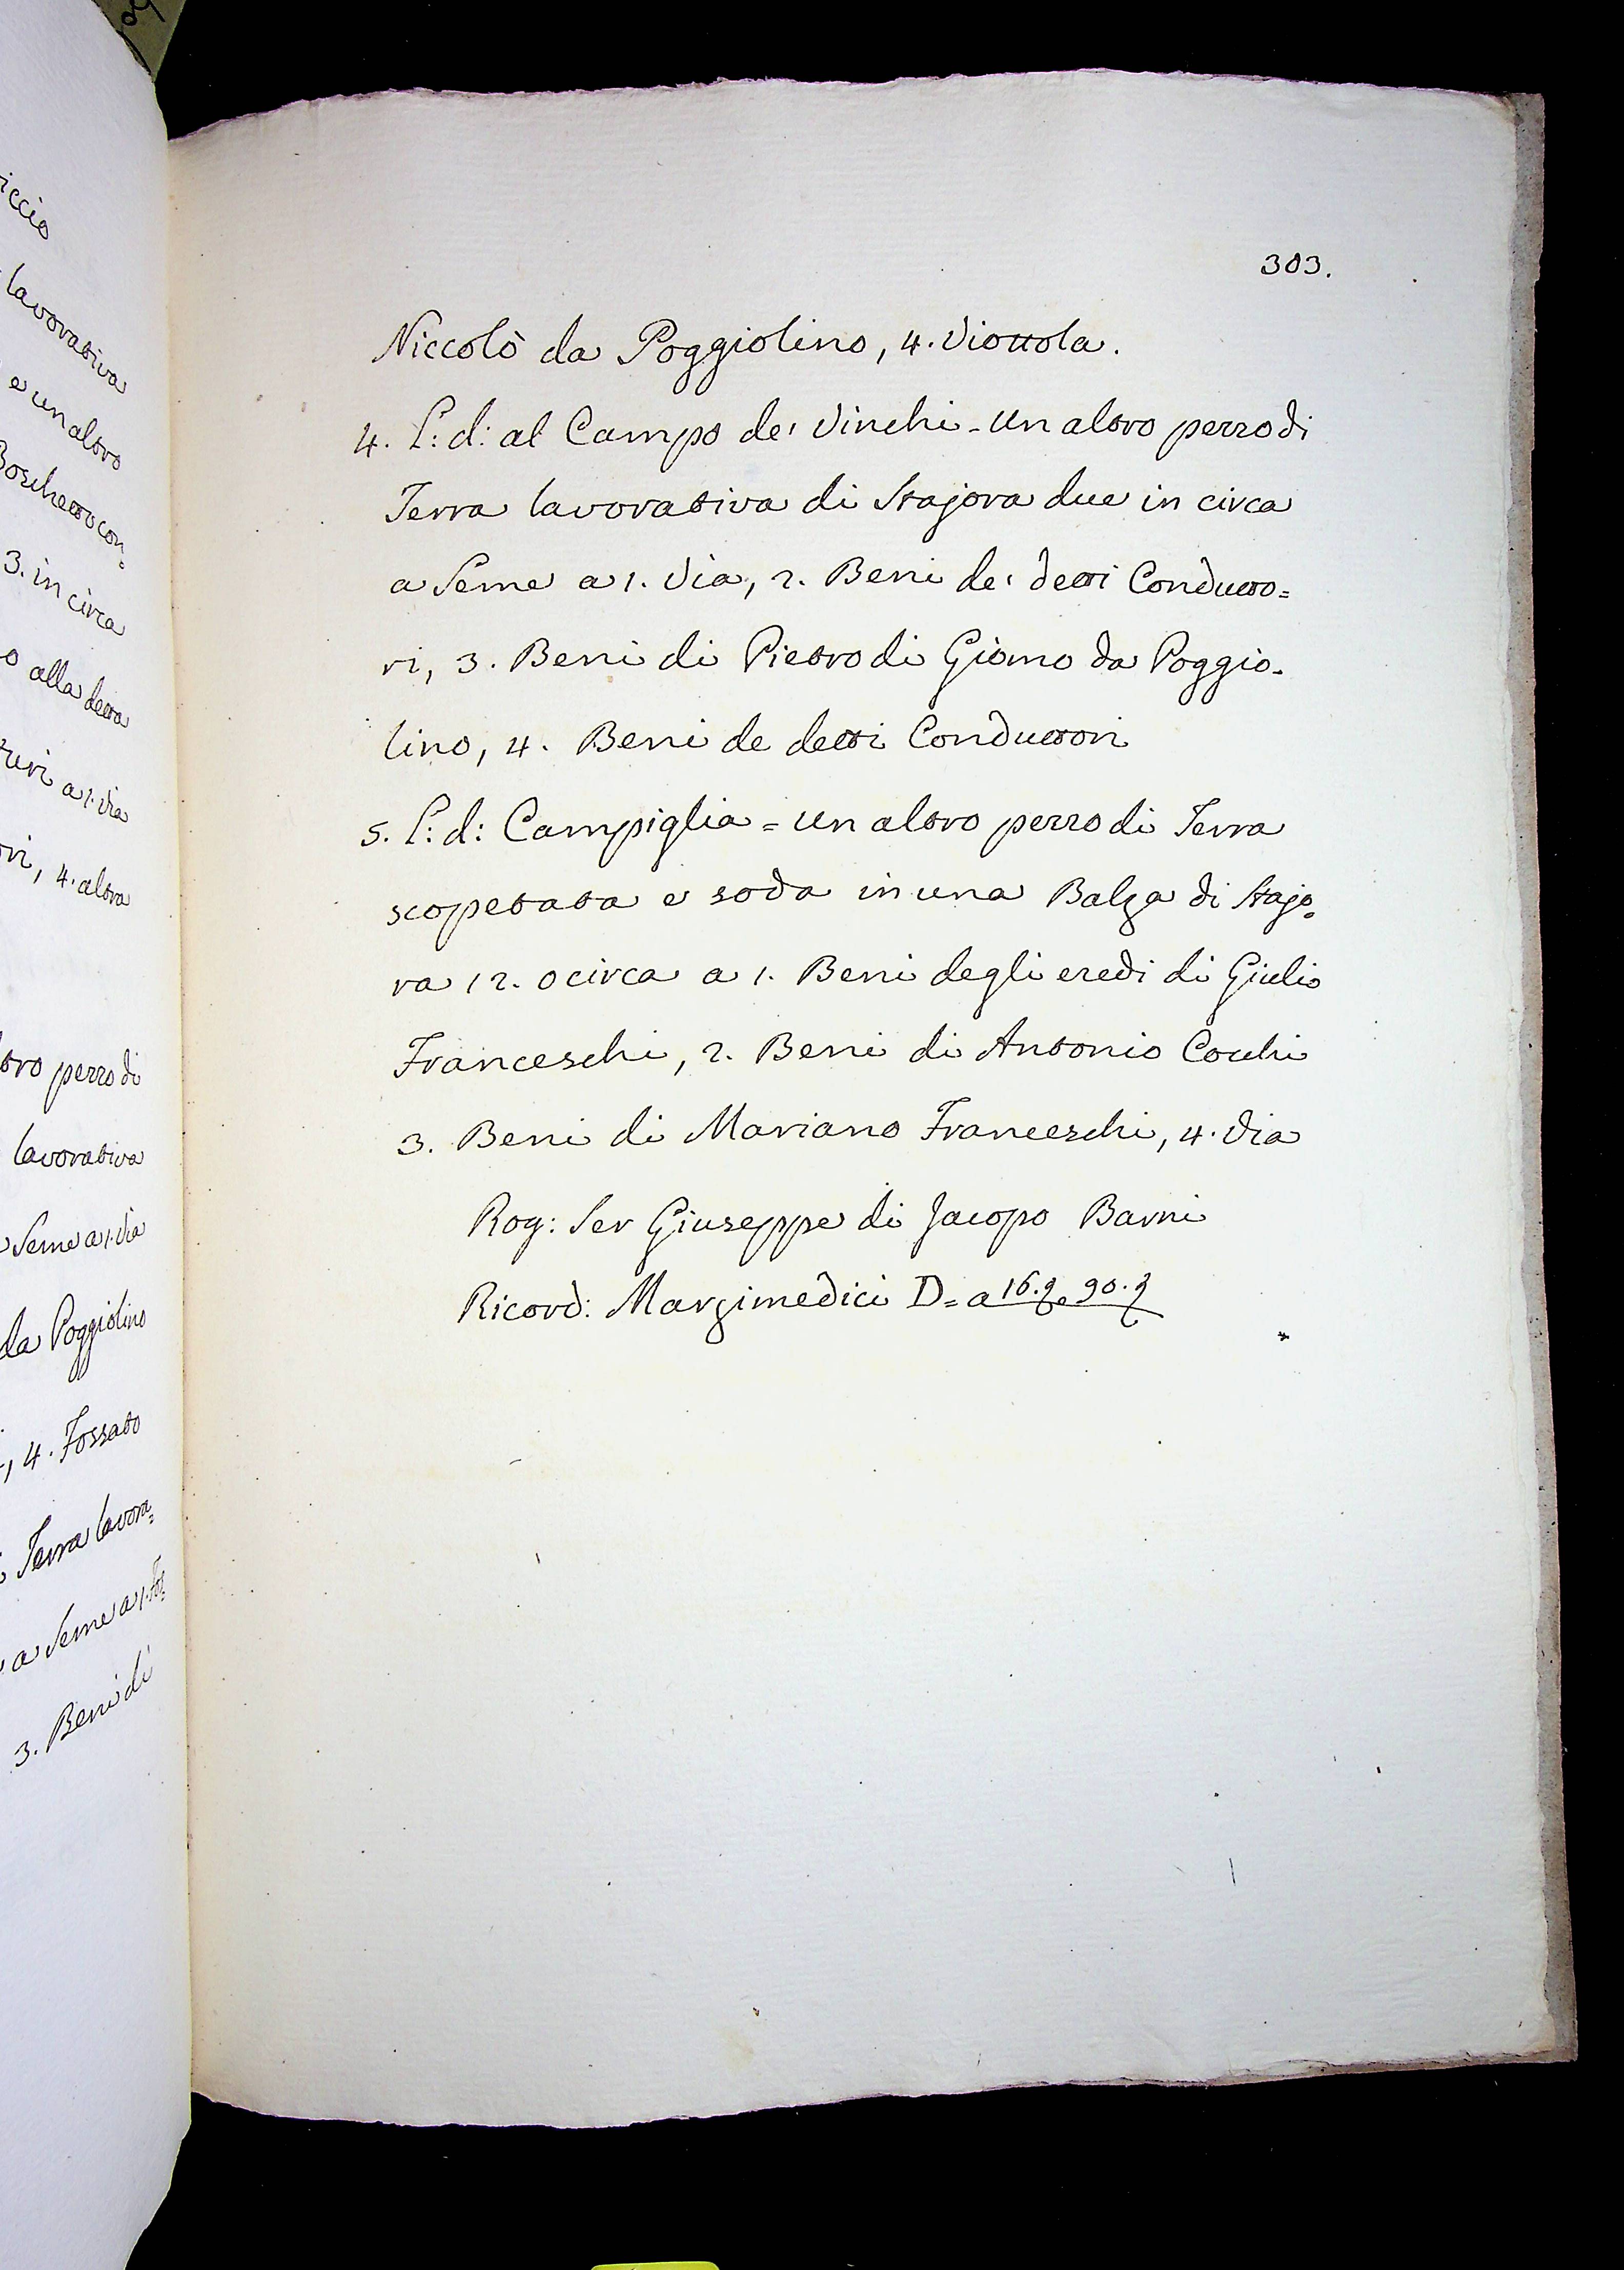 iccio
lavorativa
e un altro
Boschetto con=
3. in circa
o alla detta
a 1. Via
ri, 4. altra
tro pezzo di
lavorativa
Seme a 1. Via
da Poggiolino
, 4. Fossato
Terra lavora=
a Seme a 1. Fos=
3. Beni di
303.
Niccolò da Poggiolino, 4. Viottola.
4. L: d: al Campo de' Vinchi = Un altro pezzo di
Terra lavorativa di Stajora due in circa
a Seme a 1. Via, 2. Beni de' detti Condutto=
ri, 3. Beni di Pietro di Giomo da Poggio=
lino, 4. Beni de detti Conduttori
5. L: d: Campiglia = un altro pezzo di Terra
scopetata e soda in una Balza di Stajo=
ra 12. o circa a 1. Beni degli eredi di Giulio
Franceschi, 2. Beni di Antonio Cocchi
3. Beni di Mariano Franceschi, 4. Via
Rog: Ser Giuseppe di Jacopo Barni
Ricord: Marzimedici D = a 16. e 90.